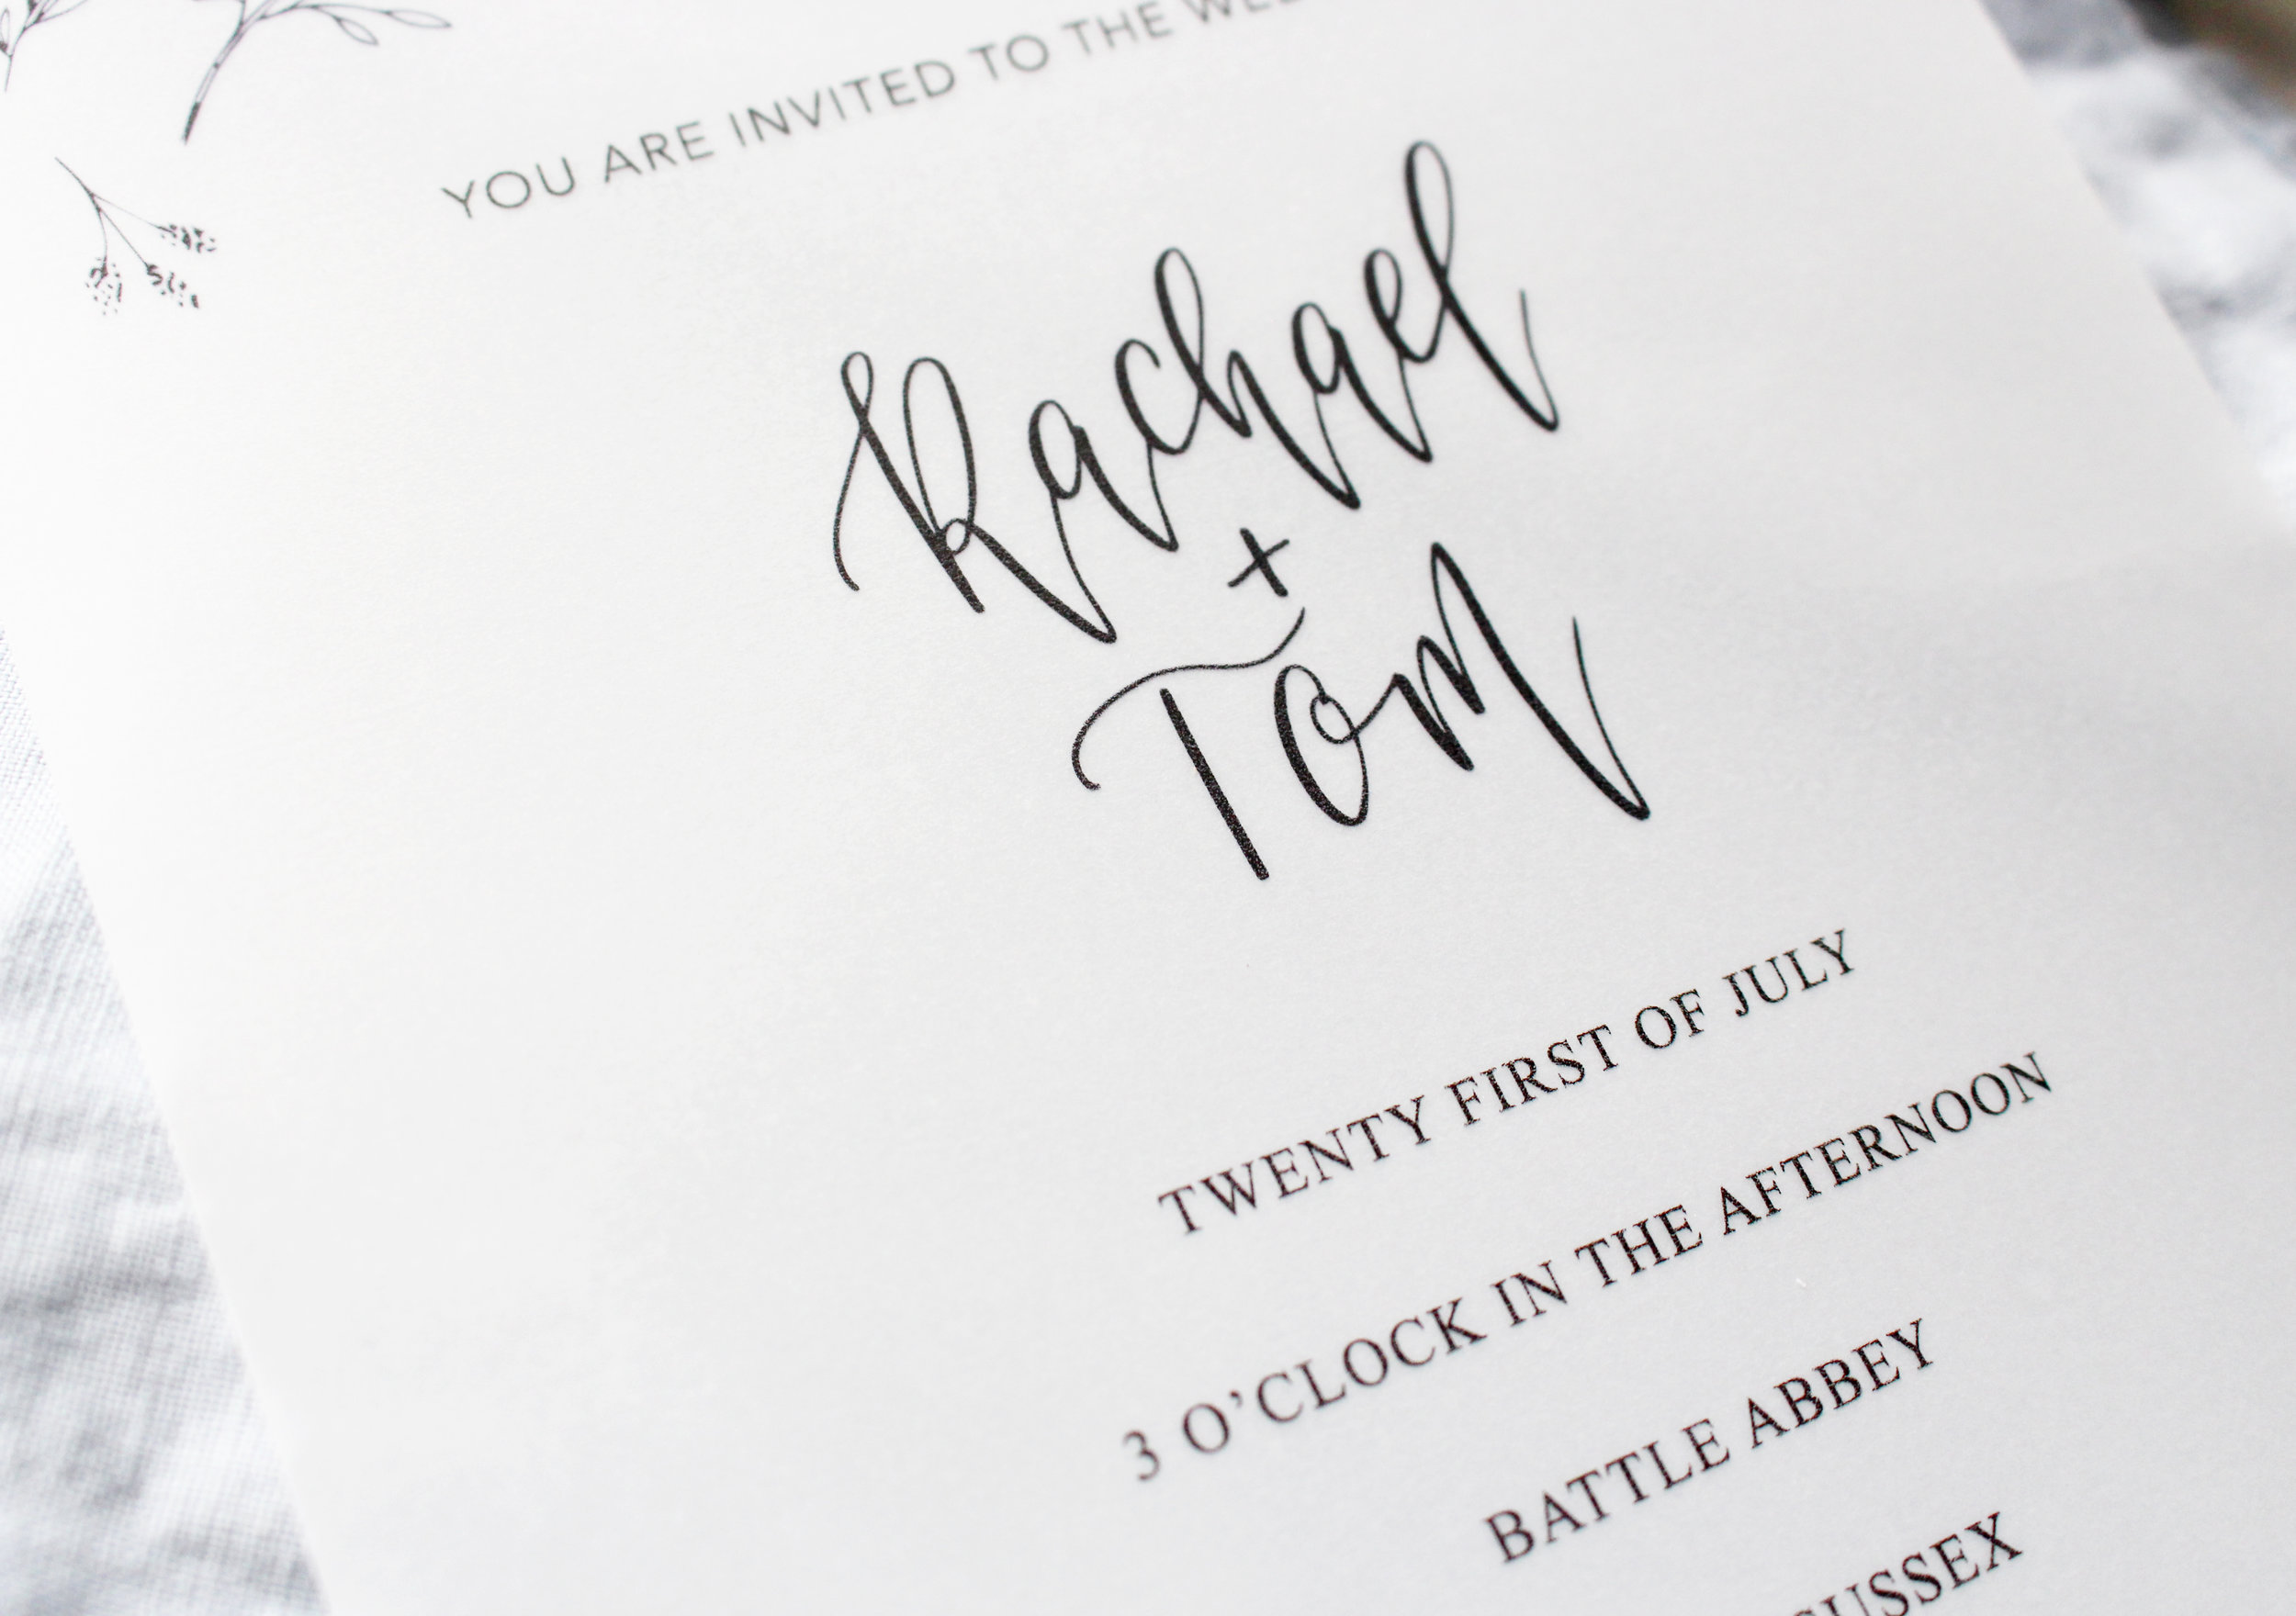 YOU ARE INVITED TO THE
Rachael
+
Tom
TWENTY FIRST OF JULY
3 O’CLOCK IN THE AFTERNOON
BATTLE ABBEY
SUSSEX